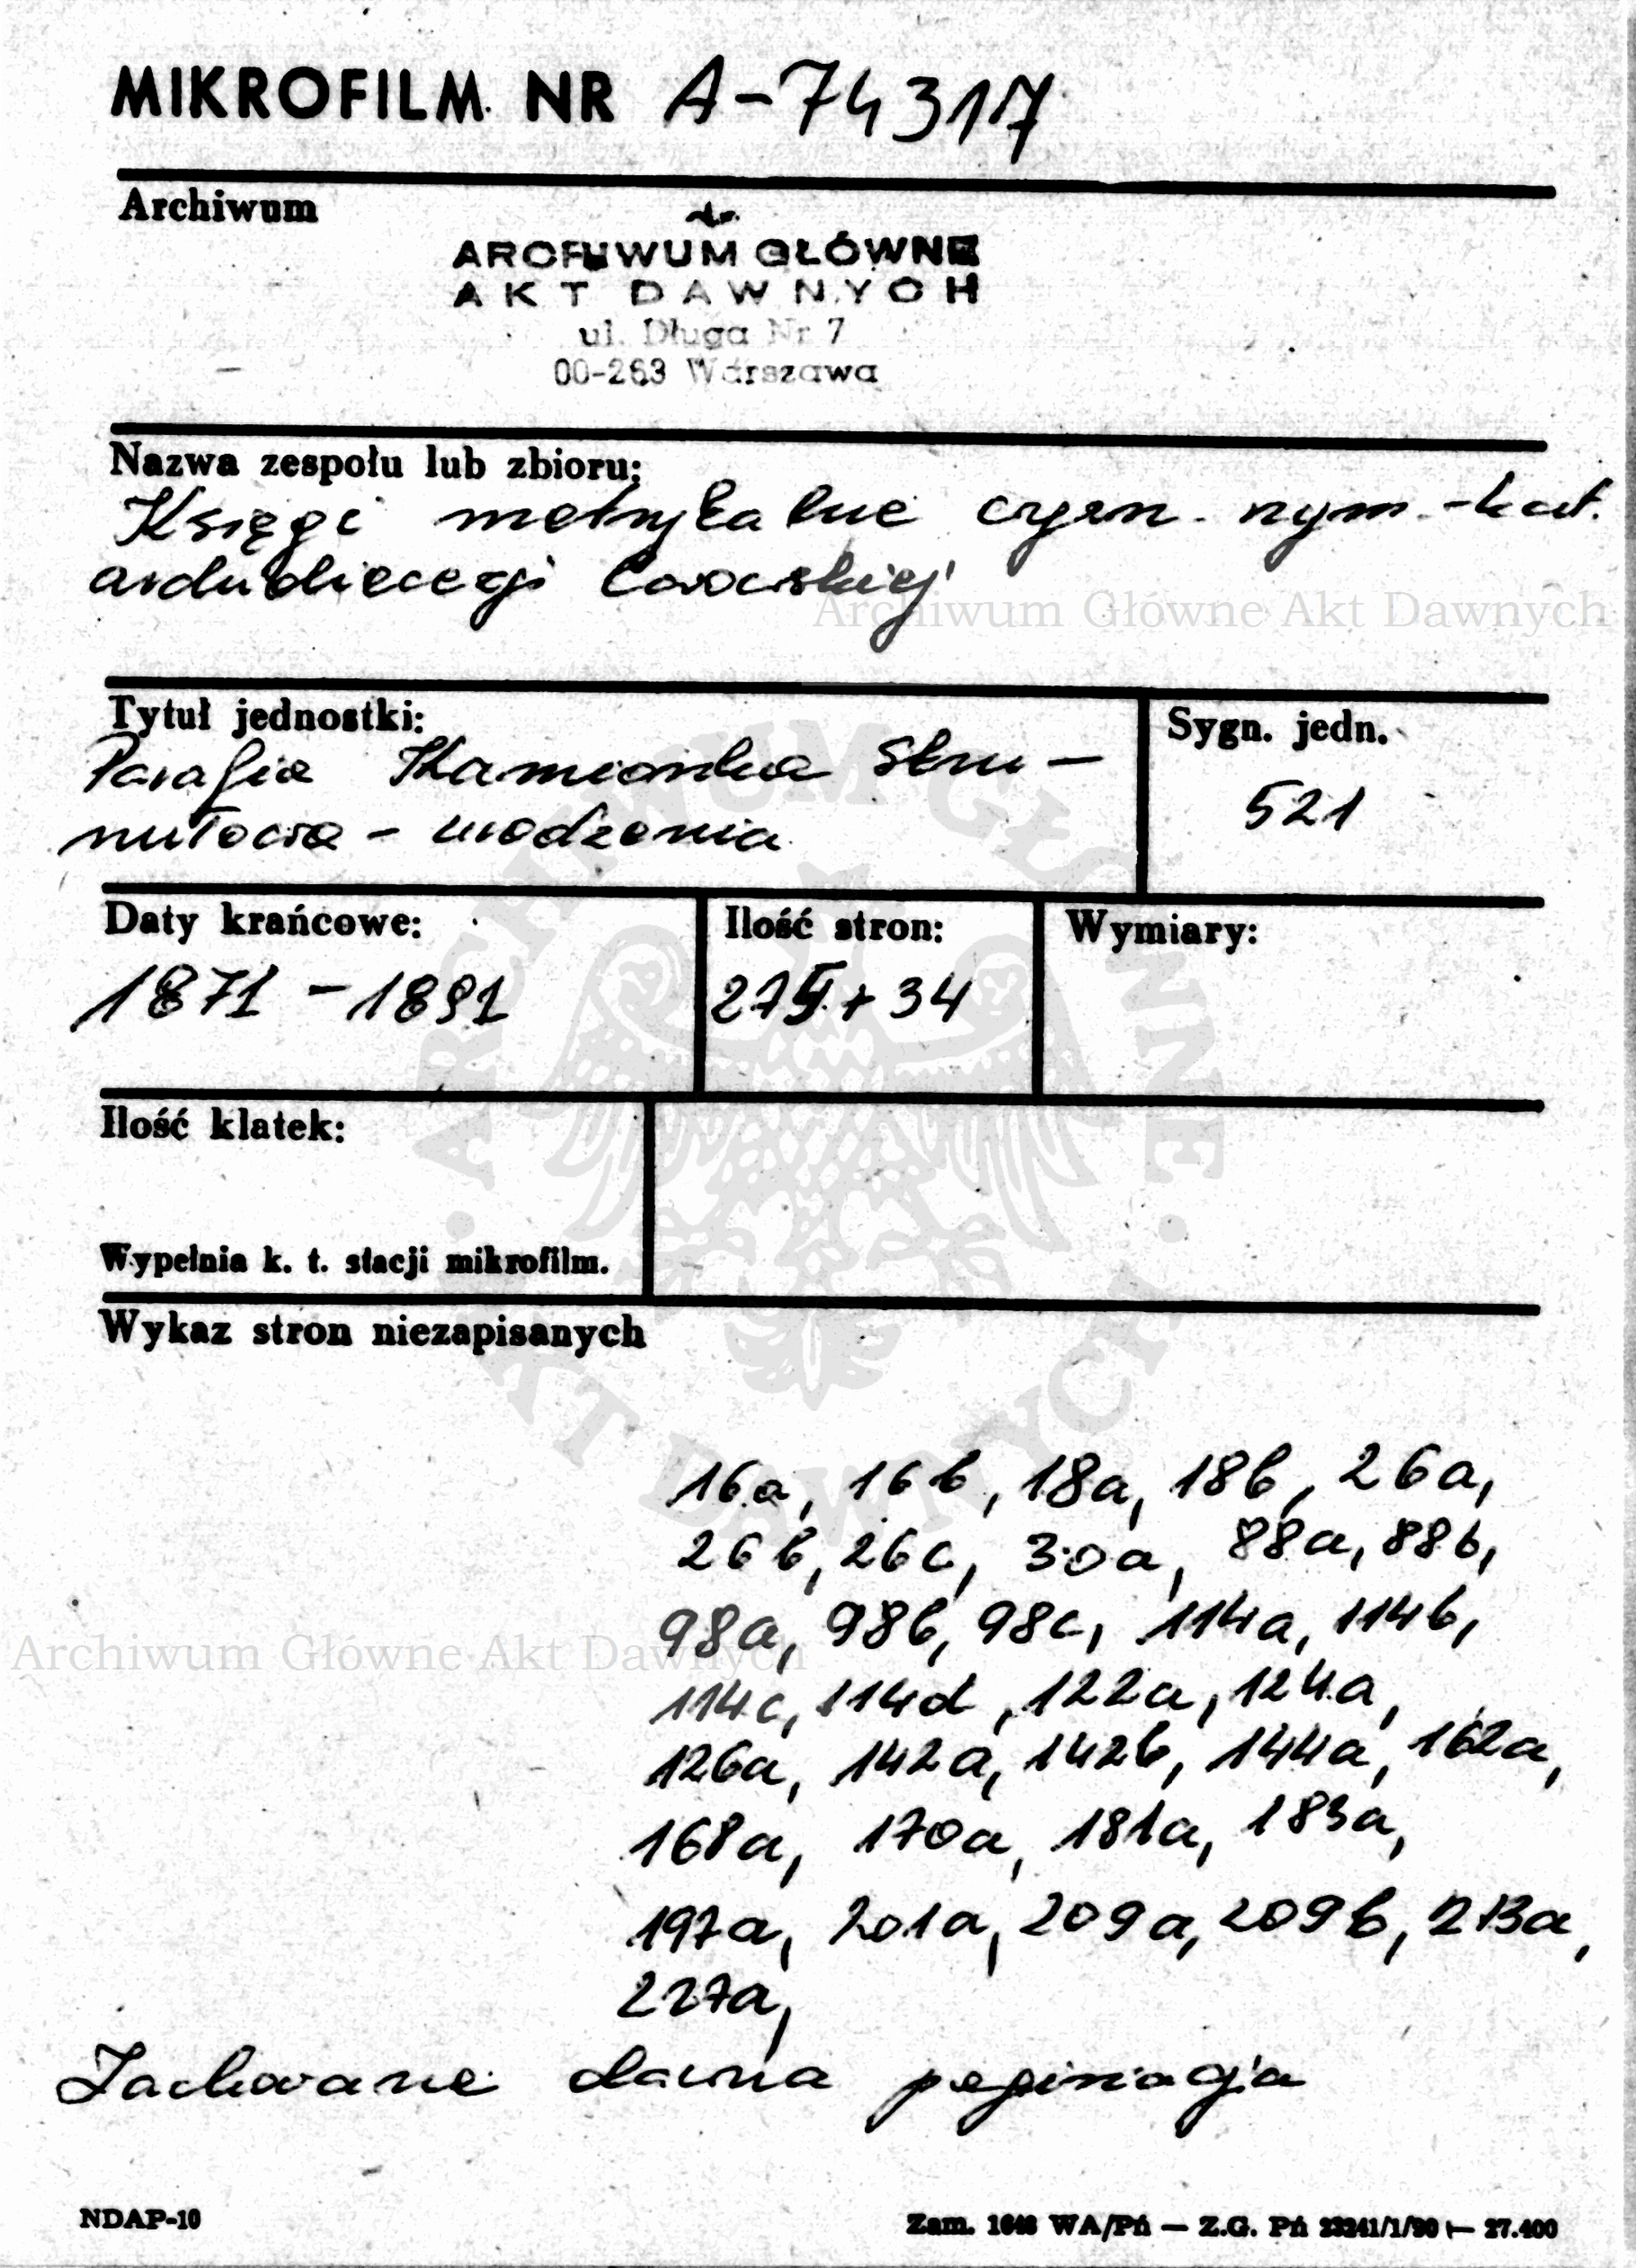 MIKROFILM NR A-74317
Archiwum
ARCHIWUM GŁÓWNE
AKT DAWNYCH
ul. Długa Nr 7
00-263 Warszawa
Nazwa zespołu lub zbioru:
Księgi metrykalne rzym.-kat.
archidiecezji Lwowskiej
Archiwum Główne Akt Dawnych
Tytuł jednostki:
Parafia Kamionka Stru-
miłowa - urodzenia
Sygn. jedn.
521
Daty krańcowe:
1871 - 1891
Ilość stron:
275 + 34
Wymiary:
Ilość klatek:
Wypełnia k. t. stacji mikrofilm.
Wykaz stron niezapisanych
16a, 16b, 18a, 18b, 26a,
26b, 26c, 30a, 88a, 88b,
98a, 98b, 98c, 114a, 114b,
Archiwum Główne Akt Dawnych
114c, 114d, 122a, 124a,
126a, 142a, 142b, 144a, 162a,
168a, 170a, 181a, 183a,
197a, 201a, 209a, 209b, 213a,
227a,
Zachowane dawna paginacja
NDAP-10
Zam. 1648 WA/Pń — Z.G. Pń 23241/1/90 — 27.400
ARCHIWUM GŁÓWNE AKT DAWNYCH